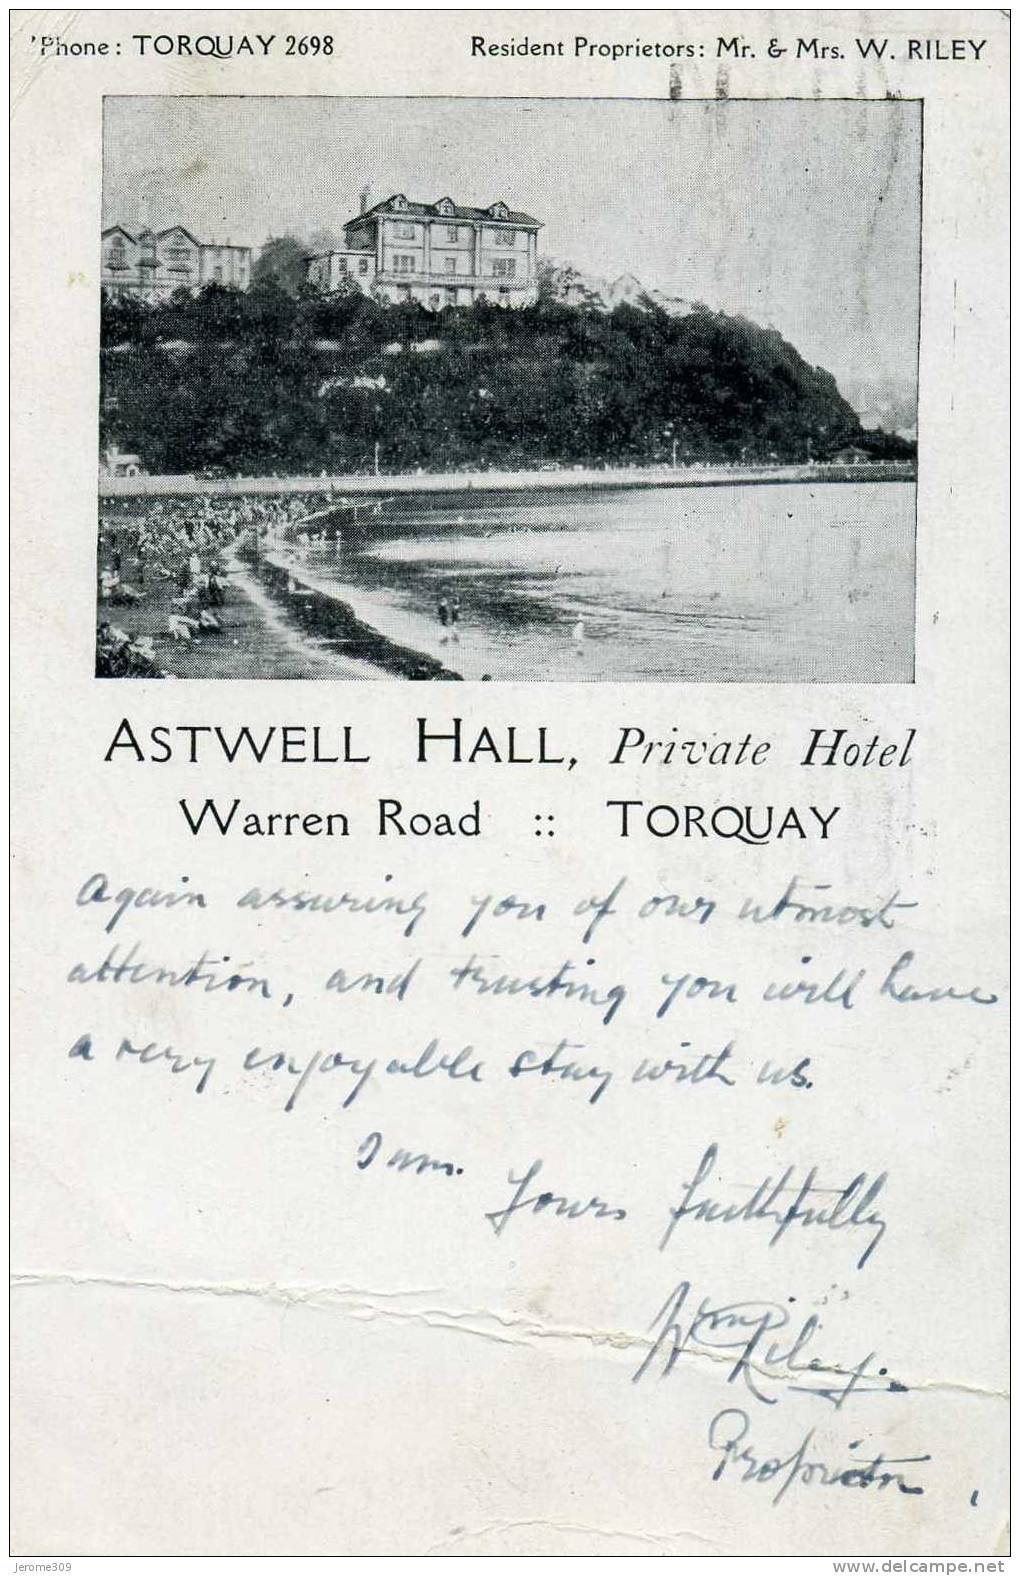 'Phone: TORQUAY 2698 Resident Proprietors: Mr. & Mrs. W. RILEY
ASTWELL HALL, Private Hotel
Warren Road :: TORQUAY
Again assuring you of our utmost
attention, and trusting you will have
a very enjoyable stay with us.
I am.
Yours faithfully
Wm Riley.
Proprietor
Jerome309 www.delcampe.net